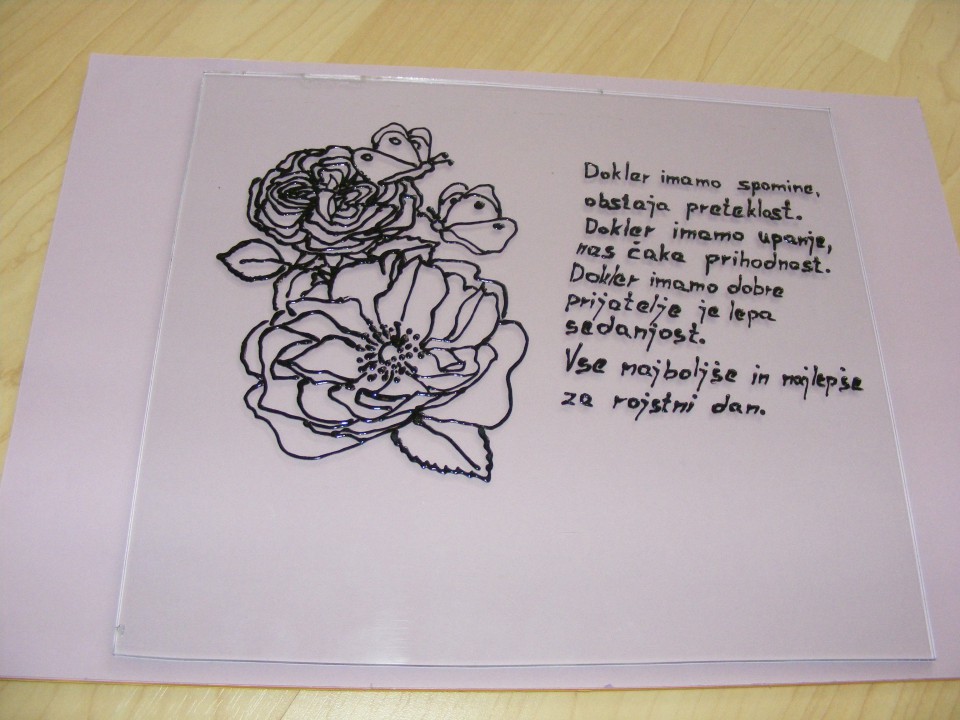 Dokler imamo spomine,
obstaja preteklost.
Dokler imamo upanje,
nas čaka prihodnost.
Dokler imamo dobre
prijatelje je lepa
sedanjost.
Vse najboljše in najlepše
za rojstni dan.